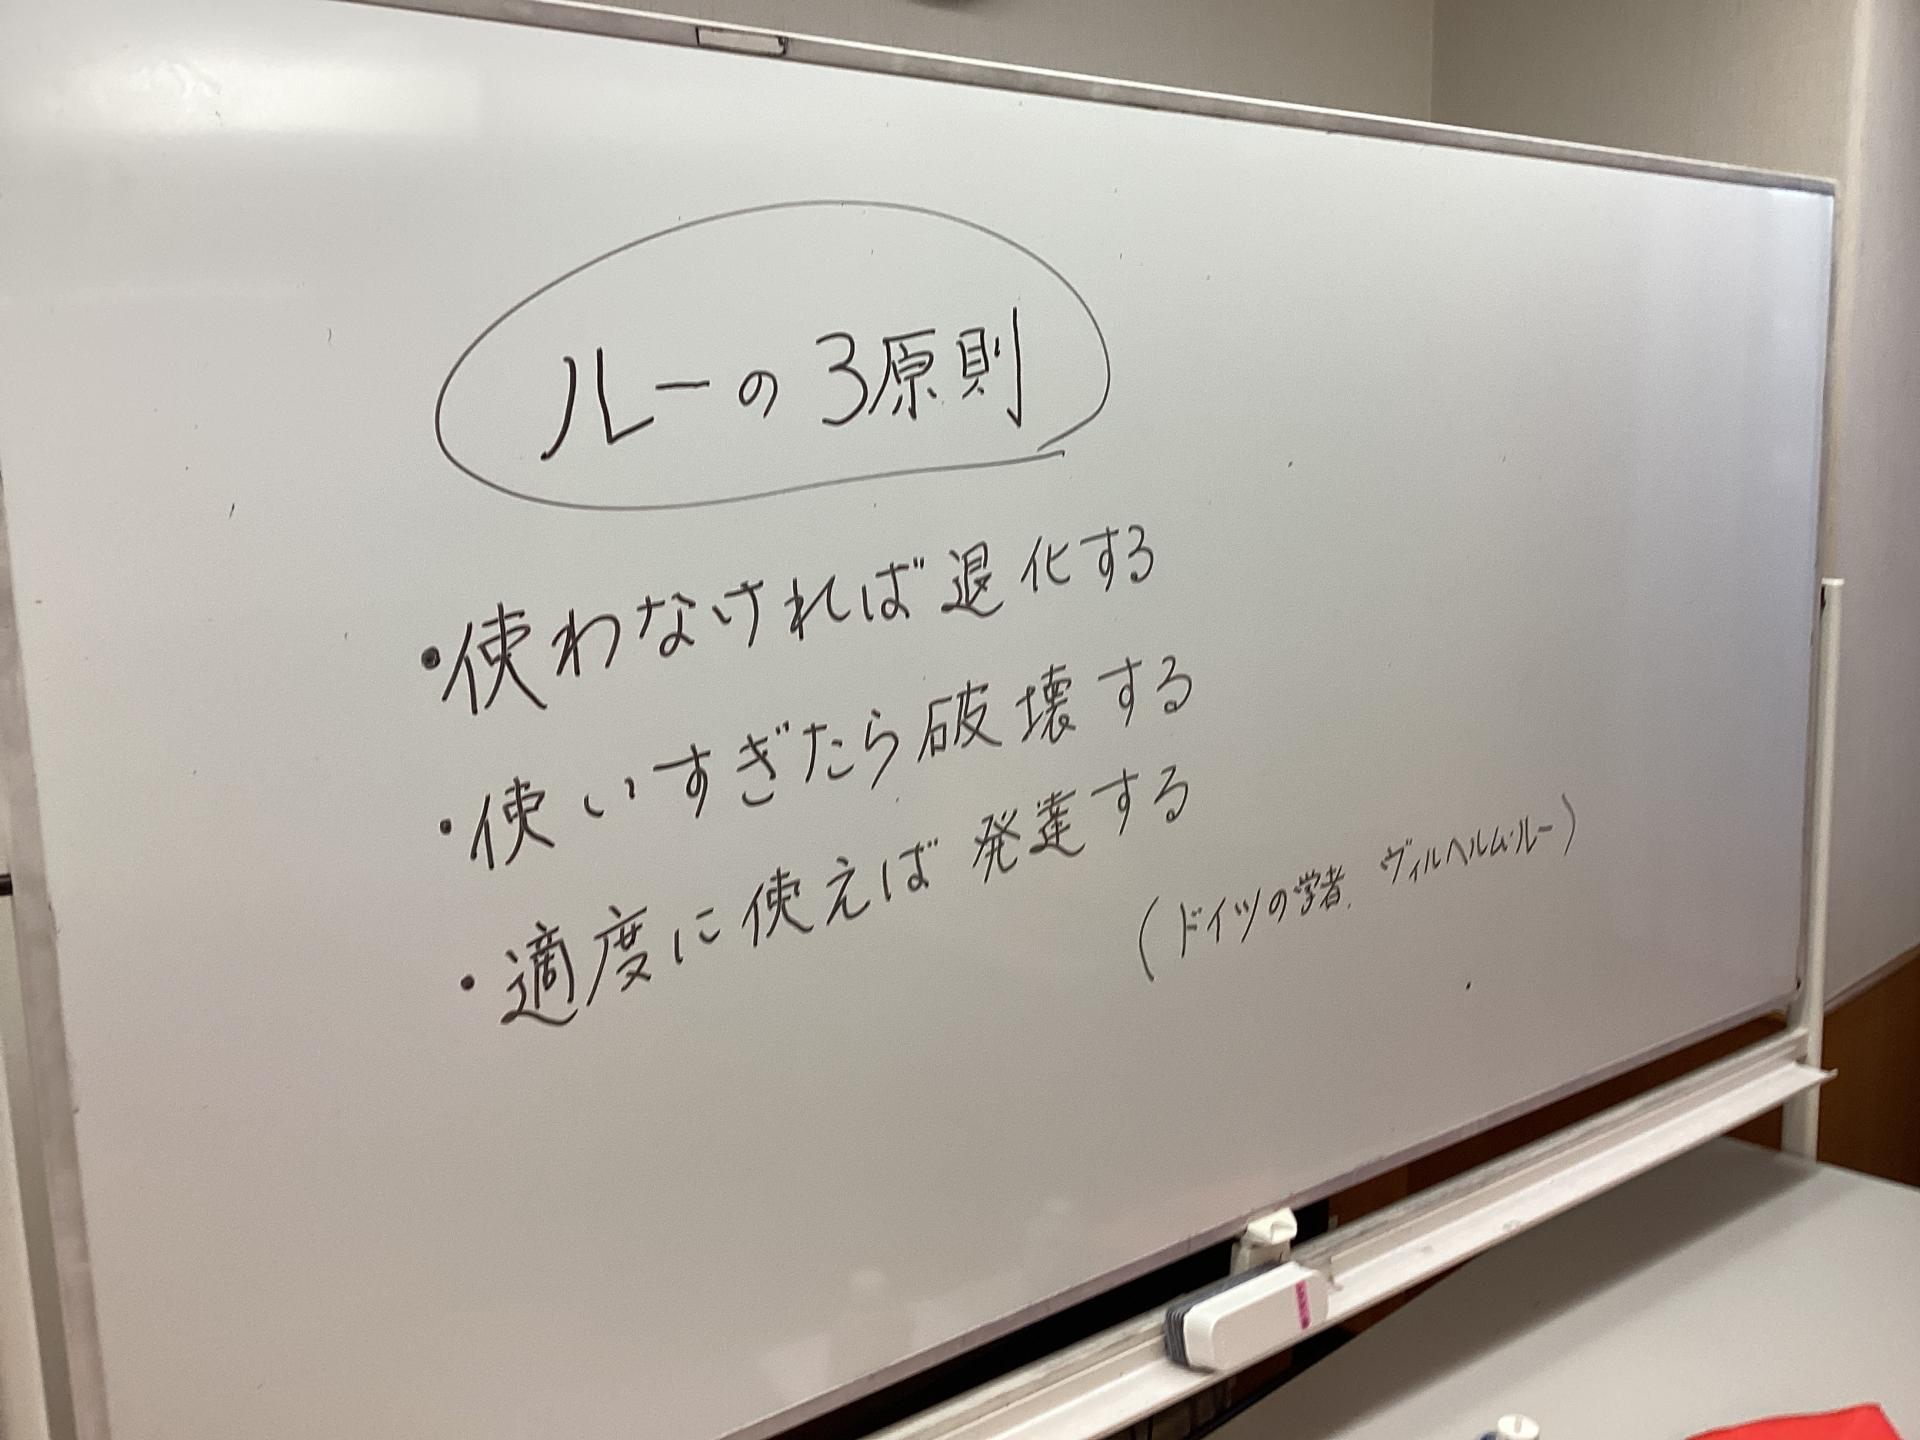 ルーの3原則
・使わなければ退化する
・使いすぎたら破壊する
・適度に使えば発達する
(ドイツの学者、ヴィルヘルム・ルー)